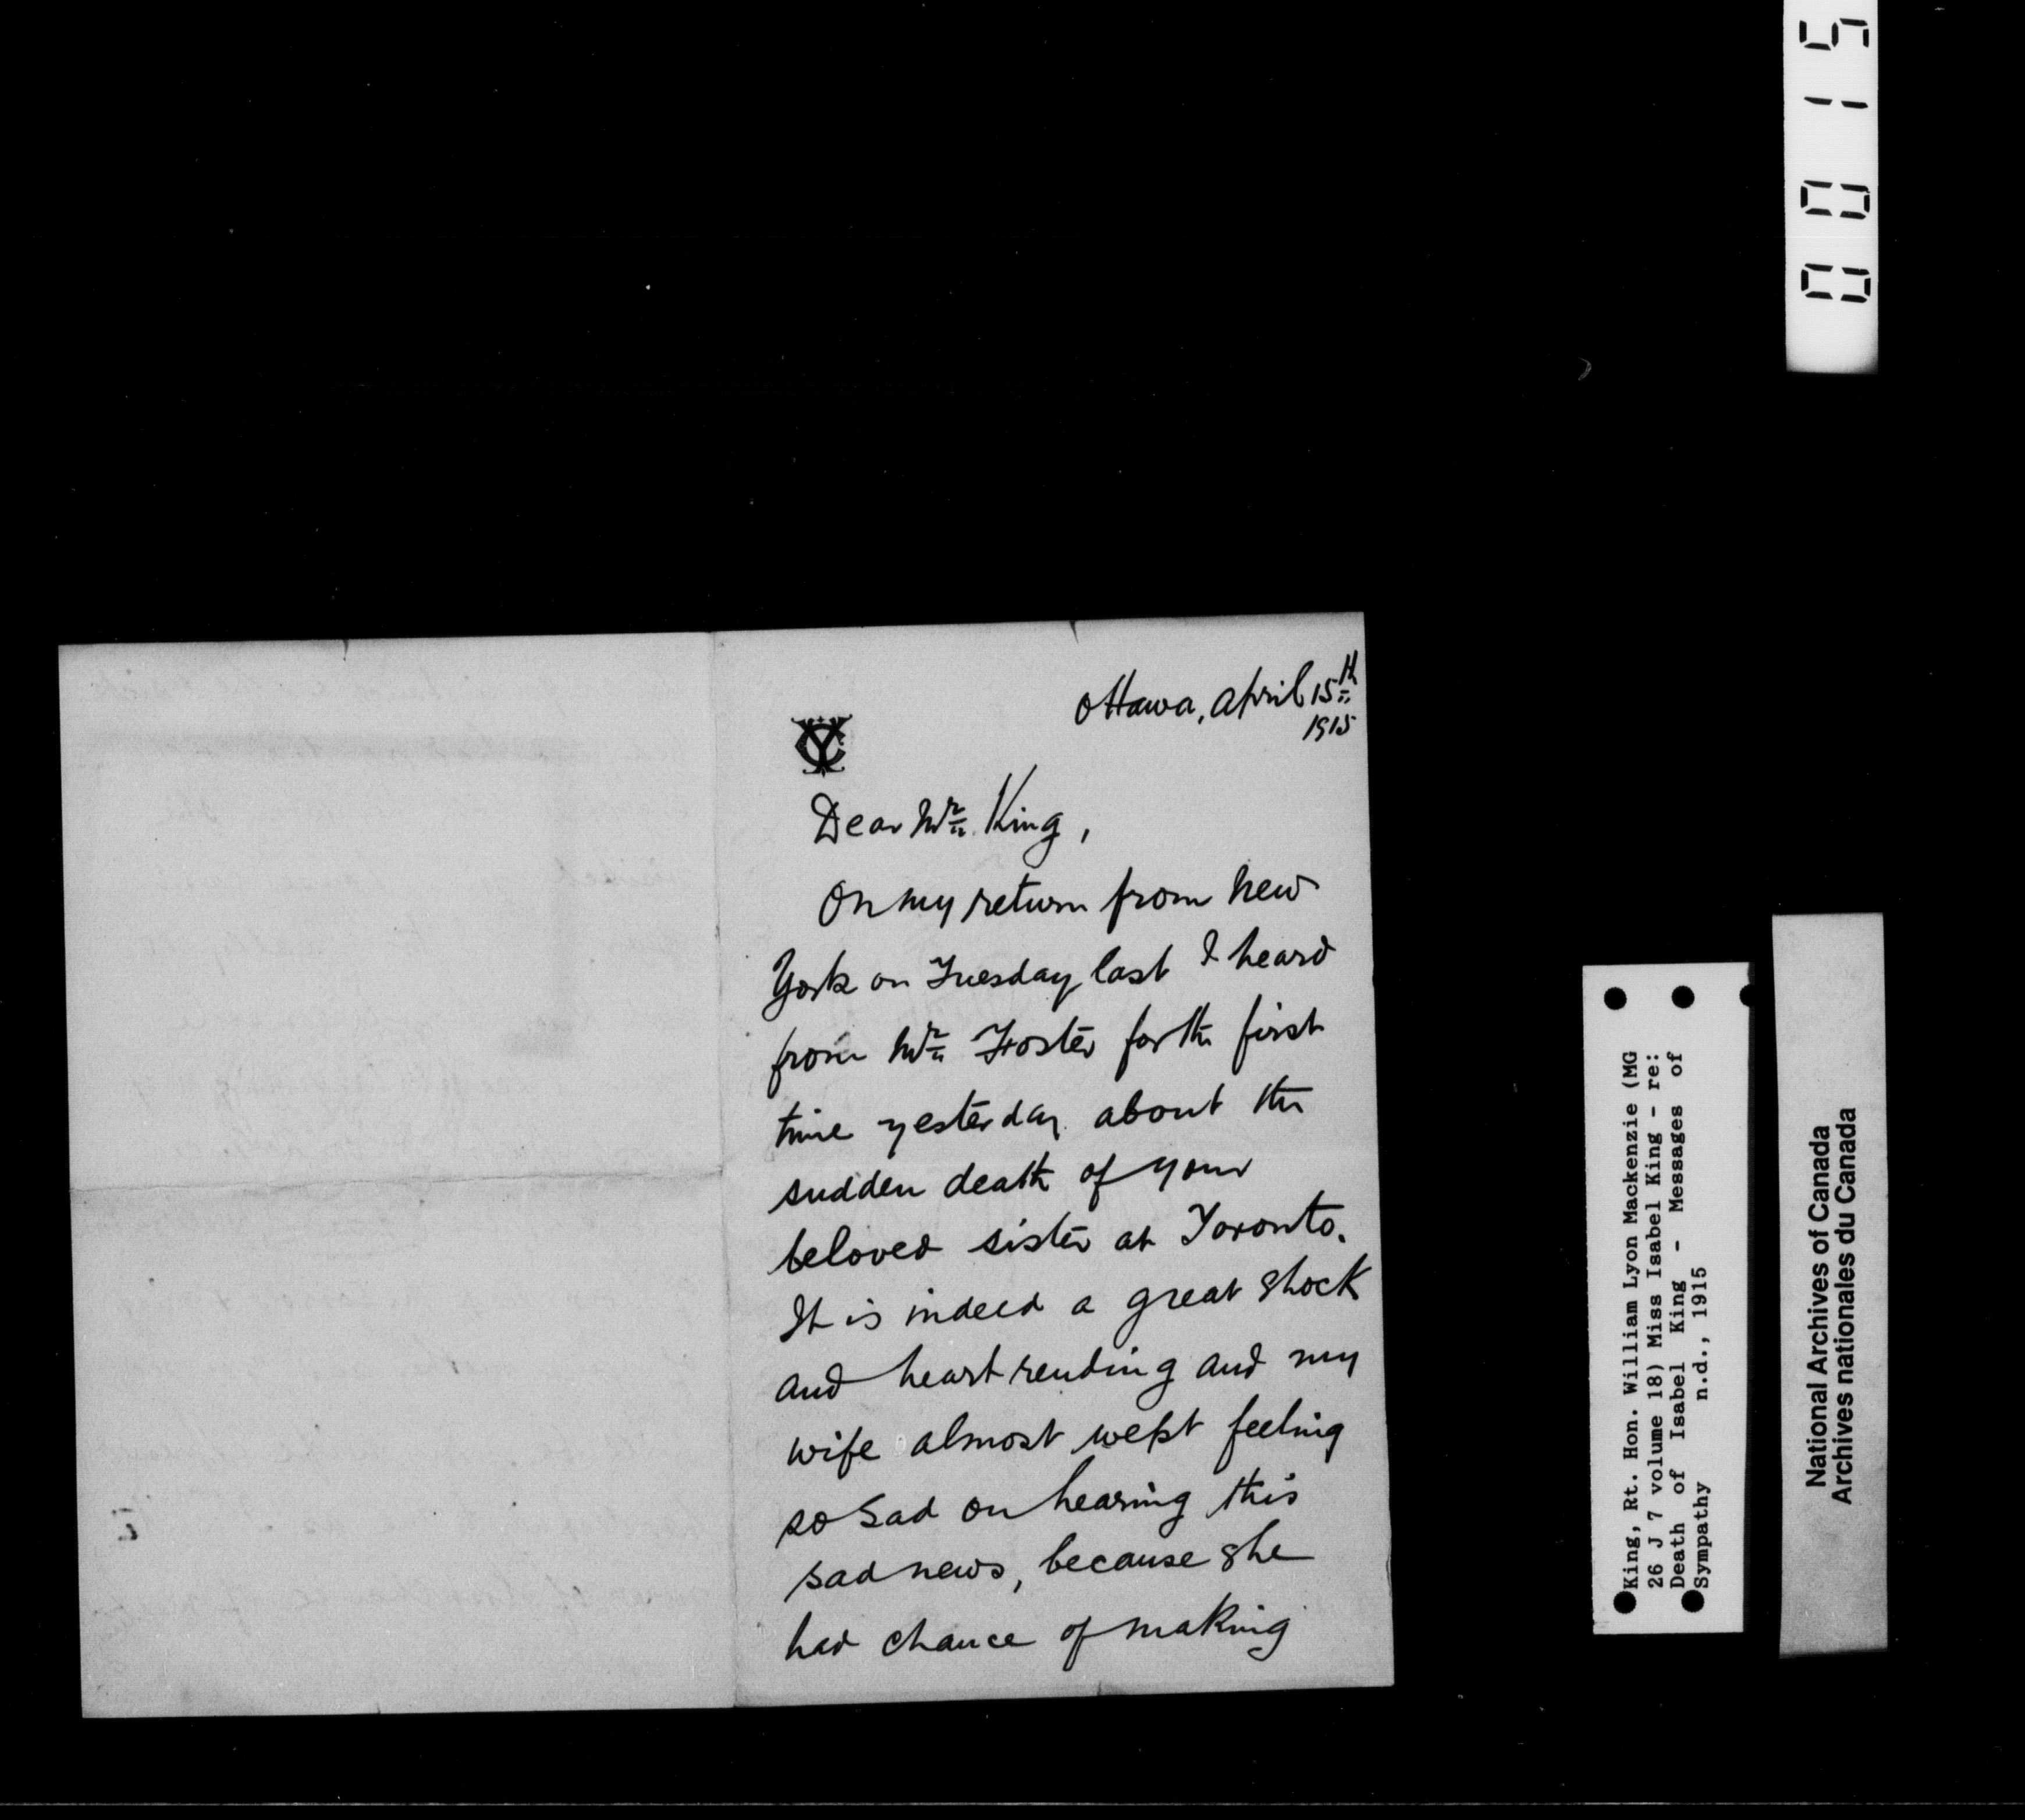 0015
Ottawa, April 15th
1915
Dear Mr. King,
On my return from New
York on Tuesday last I heard
from Mr. Foster for the first
time yesterday about the
sudden death of your
beloved sister at Toronto.
It is indeed a great shock
and heart rending and my
wife almost wept feeling
so sad on hearing this
sad news, because she
had chance of making
King, Rt. Hon. William Lyon Mackenzie (MG
26 J 7 volume 18) Miss Isabel King - re:
Death of Isabel King - Messages of
Sympathy n.d., 1915
National Archives of Canada
Archives nationales du Canada